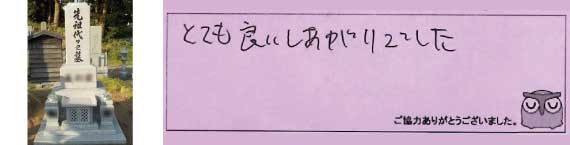 先祖代々之墓
とても良いしあがりでした
ご協力ありがとうございました。